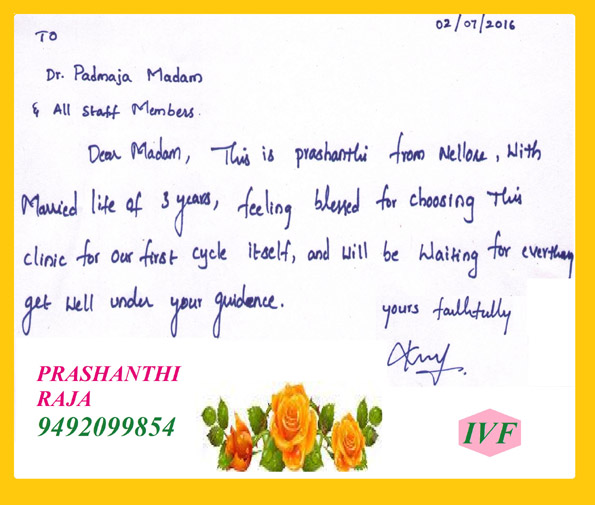 02/07/2016
TO
Dr. Padmaja Madam
& All Staff Members.
Dear Madam, This is prashanthi from Nellore, With
Married life of 3 years, feeling blessed for choosing This
clinic for our first cycle itself, and will be Waiting for everthing
get well under your guidence.
yours faithfully
PRASHANTHI
RAJA
9492099854
IVF